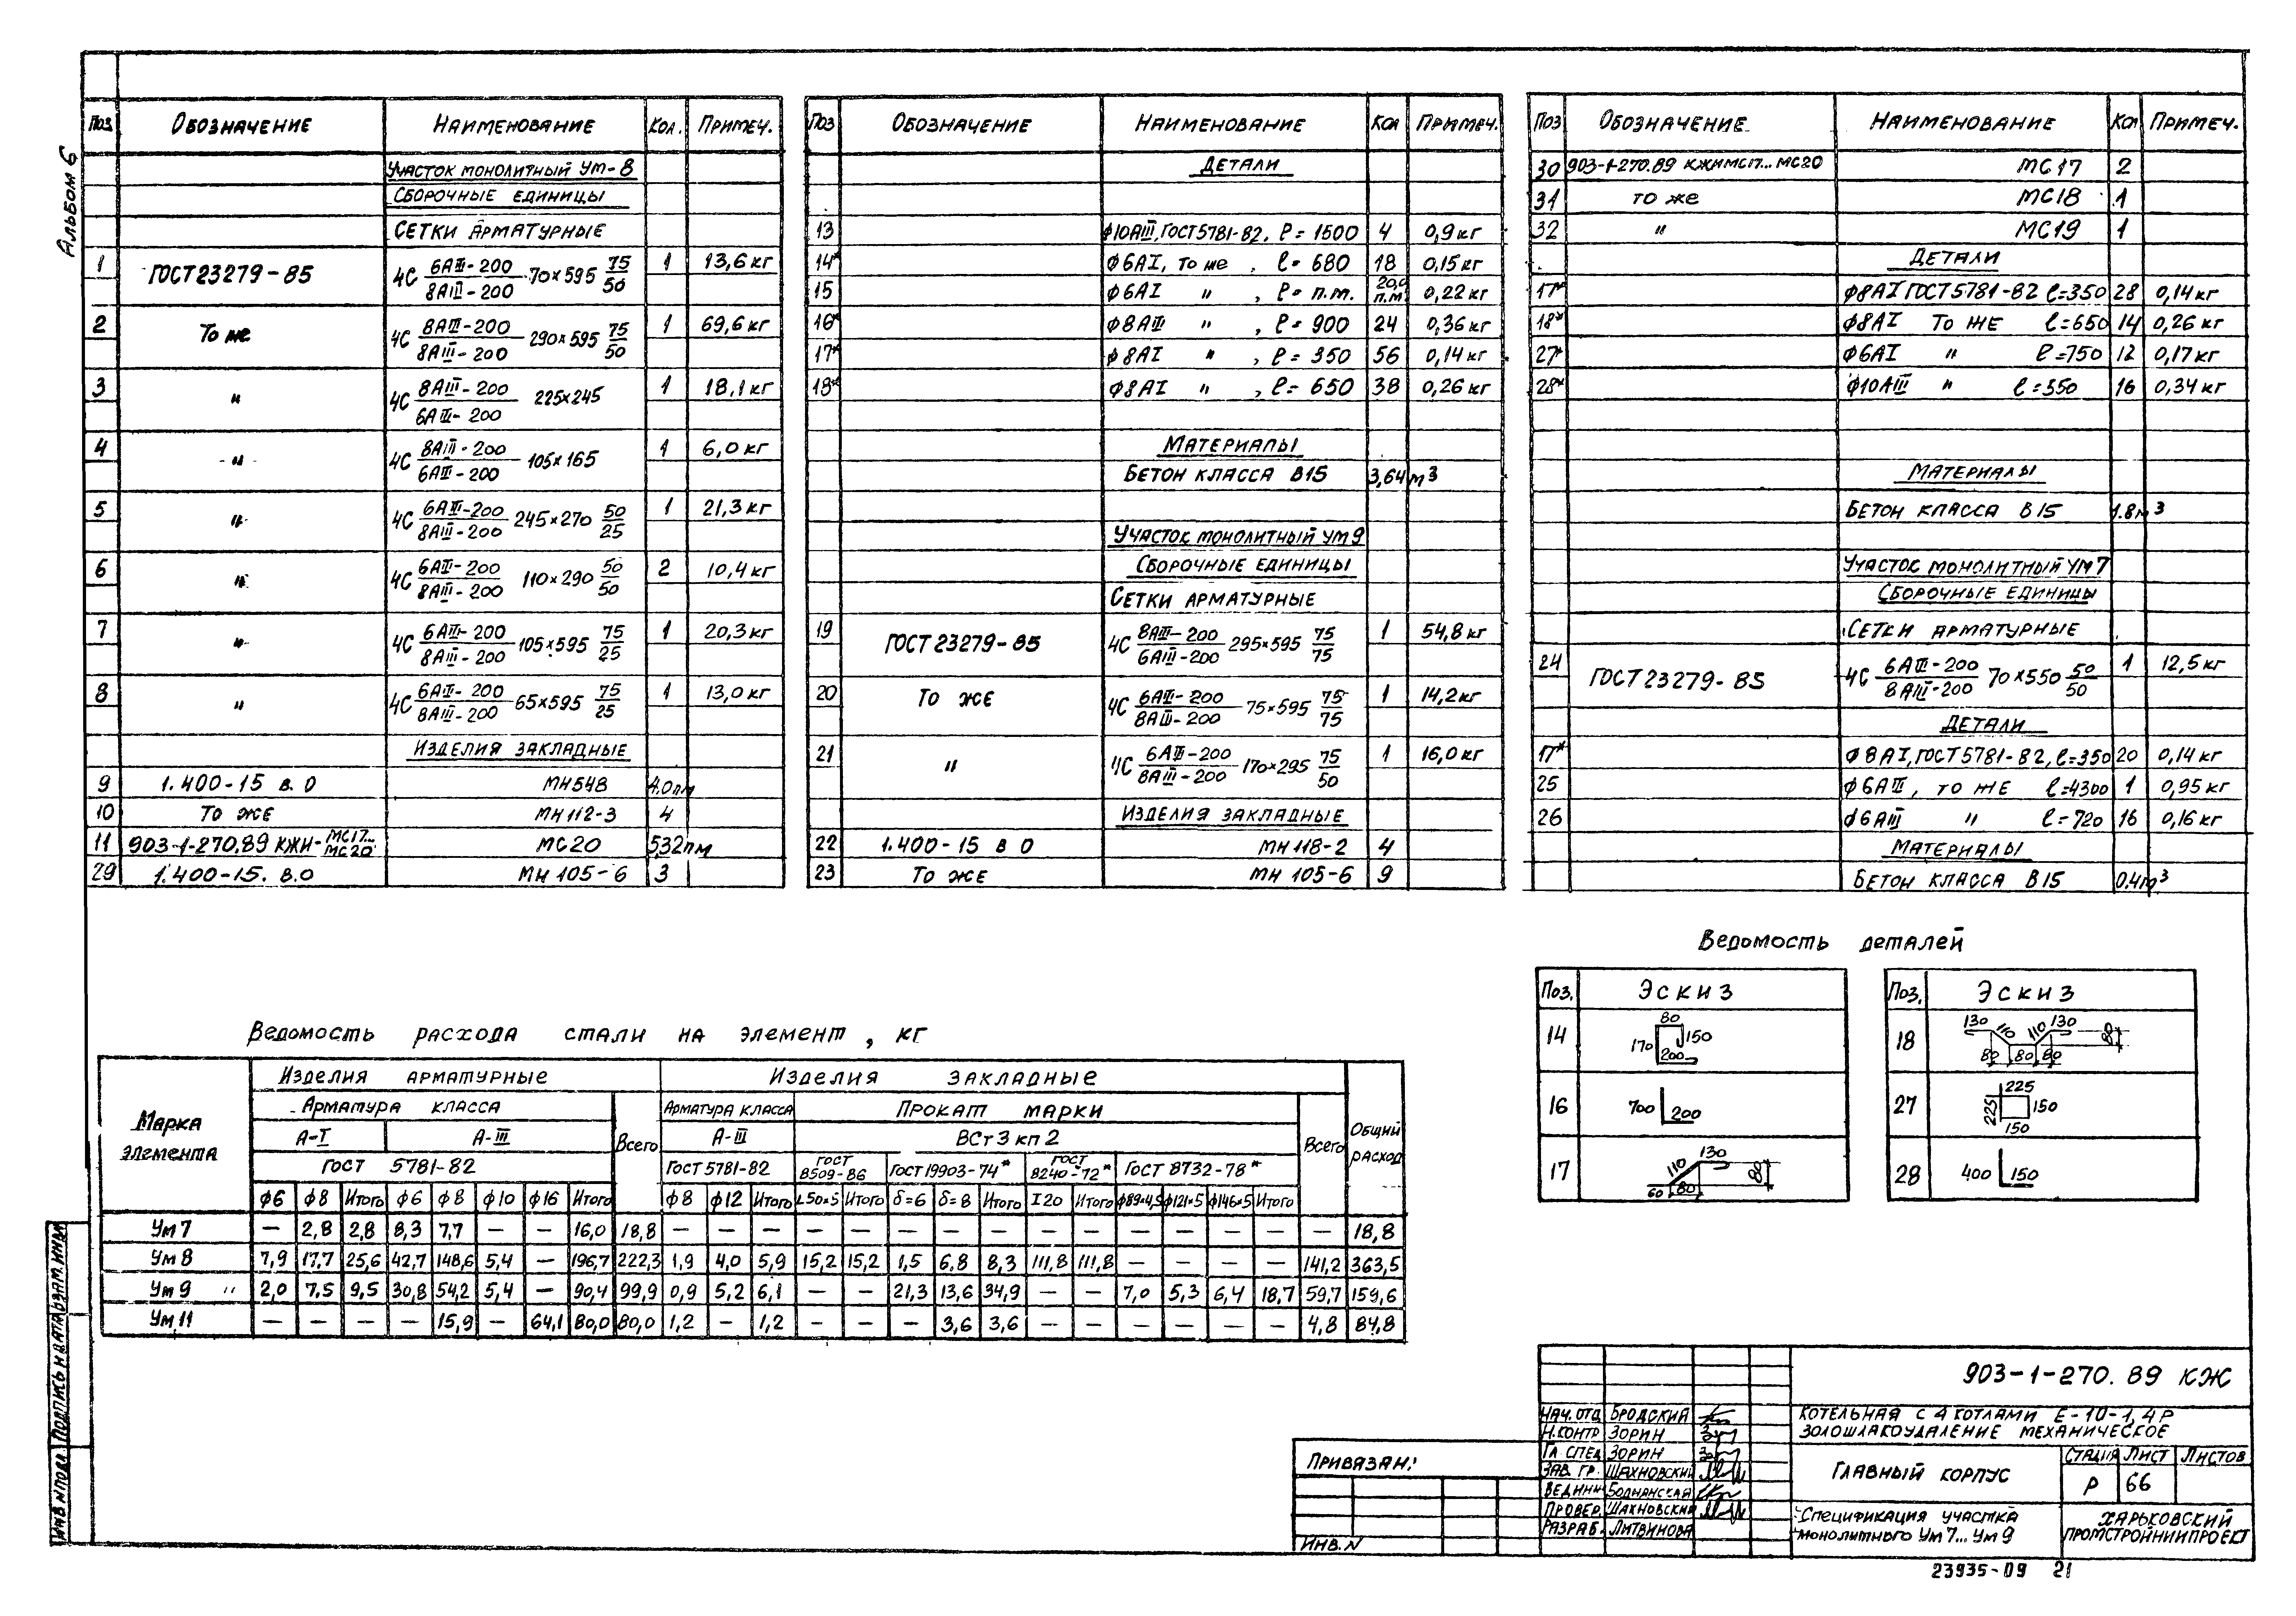 Альбом 6
Поз. Обозначение Наименование Кол. Примеч.
Участок монолитный Ум-8
Сборочные единицы
Сетки арматурные
1 ГОСТ 23279-85 4С 6АIII-200/8АIII-200 70×595 75/50 1 13,6 кг
2 То же 4С 8АIII-200/8АIII-200 290×595 75/50 1 69,6 кг
3 " 4С 8АIII-200/6АIII-200 225×245 1 18,1 кг
4 " 4С 8АIII-200/6АIII-200 105×165 1 6,0 кг
5 " 4С 6АIII-200/8АIII-200 245×270 50/25 1 21,3 кг
6 " 4С 6АIII-200/8АIII-200 110×290 50/50 2 10,4 кг
7 " 4С 6АIII-200/8АIII-200 105×595 75/25 1 20,3 кг
8 " 4С 6АIII-200/8АIII-200 65×595 75/25 1 13,0 кг
Изделия закладные
9 1.400-15 в. 0 МН548 4.0пм
10 То же МН 112-3 4
11 903-1-270.89 КЖИ-МС17...МС20 МС20 5,32пм
29 1.400-15. в.0 МН 105-6 3
Поз Обозначение Наименование Кол Примеч.
Детали
13 ф10АIII, ГОСТ 5781-82, ℓ=1500 4 0,9 кг
14* ф6АI, то же, ℓ=680 18 0,15 кг
15 ф6АI ", ℓ=п.м. 20,0 п.м 0,22 кг
16* ф8АIII ", ℓ=900 24 0,36 кг
17* ф8АI ", ℓ=350 56 0,14 кг
18* ф8АI ", ℓ=650 38 0,26 кг
Материалы
Бетон класса В15 3,64 м3
Участок монолитный Ум9
Сборочные единицы
Сетки арматурные
19 ГОСТ 23279-85 4С 8АIII-200/6АIII-200 295×595 75/75 1 54,8 кг
20 То же 4С 6АIII-200/8АIII-200 75×595 75/75 1 14,2 кг
21 " 4С 6АIII-200/8АIII-200 170×295 75/50 1 16,0 кг
Изделия закладные
22 1.400-15 в 0 МН 118-2 4
23 То же МН 105-6 9
Поз Обозначение Наименование Кол Примеч.
30 903-1-270.89 КЖИ МС17...МС20 МС17 2
31 то же МС18 1
32 " МС19 1
Детали
17* ф8АI ГОСТ 5781-82 ℓ=350 28 0,14 кг
18* ф8АI То же ℓ=650 14 0,26 кг
27* ф6АI " ℓ=750 12 0,17 кг
28* ф10АIII " ℓ=550 16 0,34 кг
Материалы
Бетон класса В15 1.8м3
Участок монолитный Ум7
Сборочные единицы
Сетки арматурные
24 ГОСТ 23279-85 4С 6АIII-200/8АIII-200 70×550 50/50 1 12,5 кг
Детали
17* ф8АI, ГОСТ 5781-82, ℓ=350 20 0,14 кг
25 ф6АIII, то же ℓ=4300 1 0,95 кг
26 ф6АIII " ℓ=720 16 0,16 кг
Материалы
Бетон класса В15 0.4м3
Ведомость деталей
Поз. Эскиз
14 80 170 150 200
16 700 200
17 60 110 130 80 80
Поз. Эскиз
18 130 110 110 130 80 80 80 80
27 225 225 150 150
28 400 150
Ведомость расхода стали на элемент, кг
Марка элемента
Изделия арматурные Изделия закладные
Арматура класса Всего Арматура класса Прокат марки Всего Общий расход
А-I А-III А-III ВСт3 кп 2
ГОСТ 5781-82 ГОСТ 5781-82 ГОСТ 8509-86 ГОСТ 19903-74* ГОСТ 8240-72* ГОСТ 8732-78*
ф6 ф8 Итого ф6 ф8 ф10 ф16 Итого ф8 ф12 Итого L50×5 Итого δ=6 δ=8 Итого I20 Итого ф89×4,5 ф121×5 ф146×5 Итого
Ум 7 — 2,8 2,8 8,3 7,7 — — 16,0 18,8 — — — — — — — — — — — — — — — 18,8
Ум 8 7,9 17,7 25,6 42,7 148,6 5,4 — 196,7 222,3 1,9 4,0 5,9 15,2 15,2 1,5 6,8 8,3 111,8 111,8 — — — — 141,2 363,5
Ум 9 " 2,0 7,5 9,5 30,8 54,2 5,4 — 90,4 99,9 0,9 5,2 6,1 — — 21,3 13,6 34,9 — — 7,0 5,3 6,4 18,7 59,7 159,6
Ум 11 — — — — 15,9 — 64,1 80,0 80,0 1,2 — 1,2 — — — 3,6 3,6 — — — — — — 4,8 84,8
Инв N подл. Подпись и дата Взам. инв
Привязан:
Инв. N
Нач. отд Бродский
Н.контр Зорин
Гл. спец Зорин
Зав. гр. Шахновский
Вед инж Боднянская
Провер. Шахновский
Разраб. Литвинова
903-1-270.89 КЖ
Котельная с 4 котлами Е-10-1,4Р
золошлакоудаление механическое
Главный корпус
Стадия Лист Листов
Р 66
Спецификация участка
монолитного Ум 7... Ум 9
Харьковский
Промстройниипроект
23935-09 21